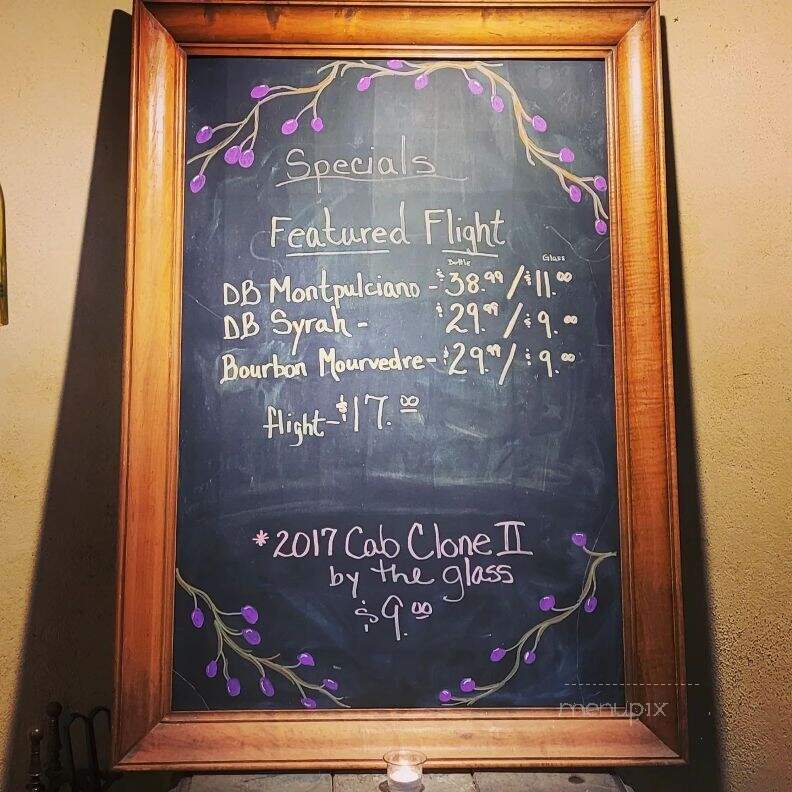 Specials
Featured Flight
Bottle Glass
DB Montpulciano - $38.99 / $11.00
DB Syrah - $29.99 / $9.00
Bourbon Mourvedre - $29.99 / $9.00
flight - $17.00
*2017 Cab Clone II
by the glass
$9.00
menupix